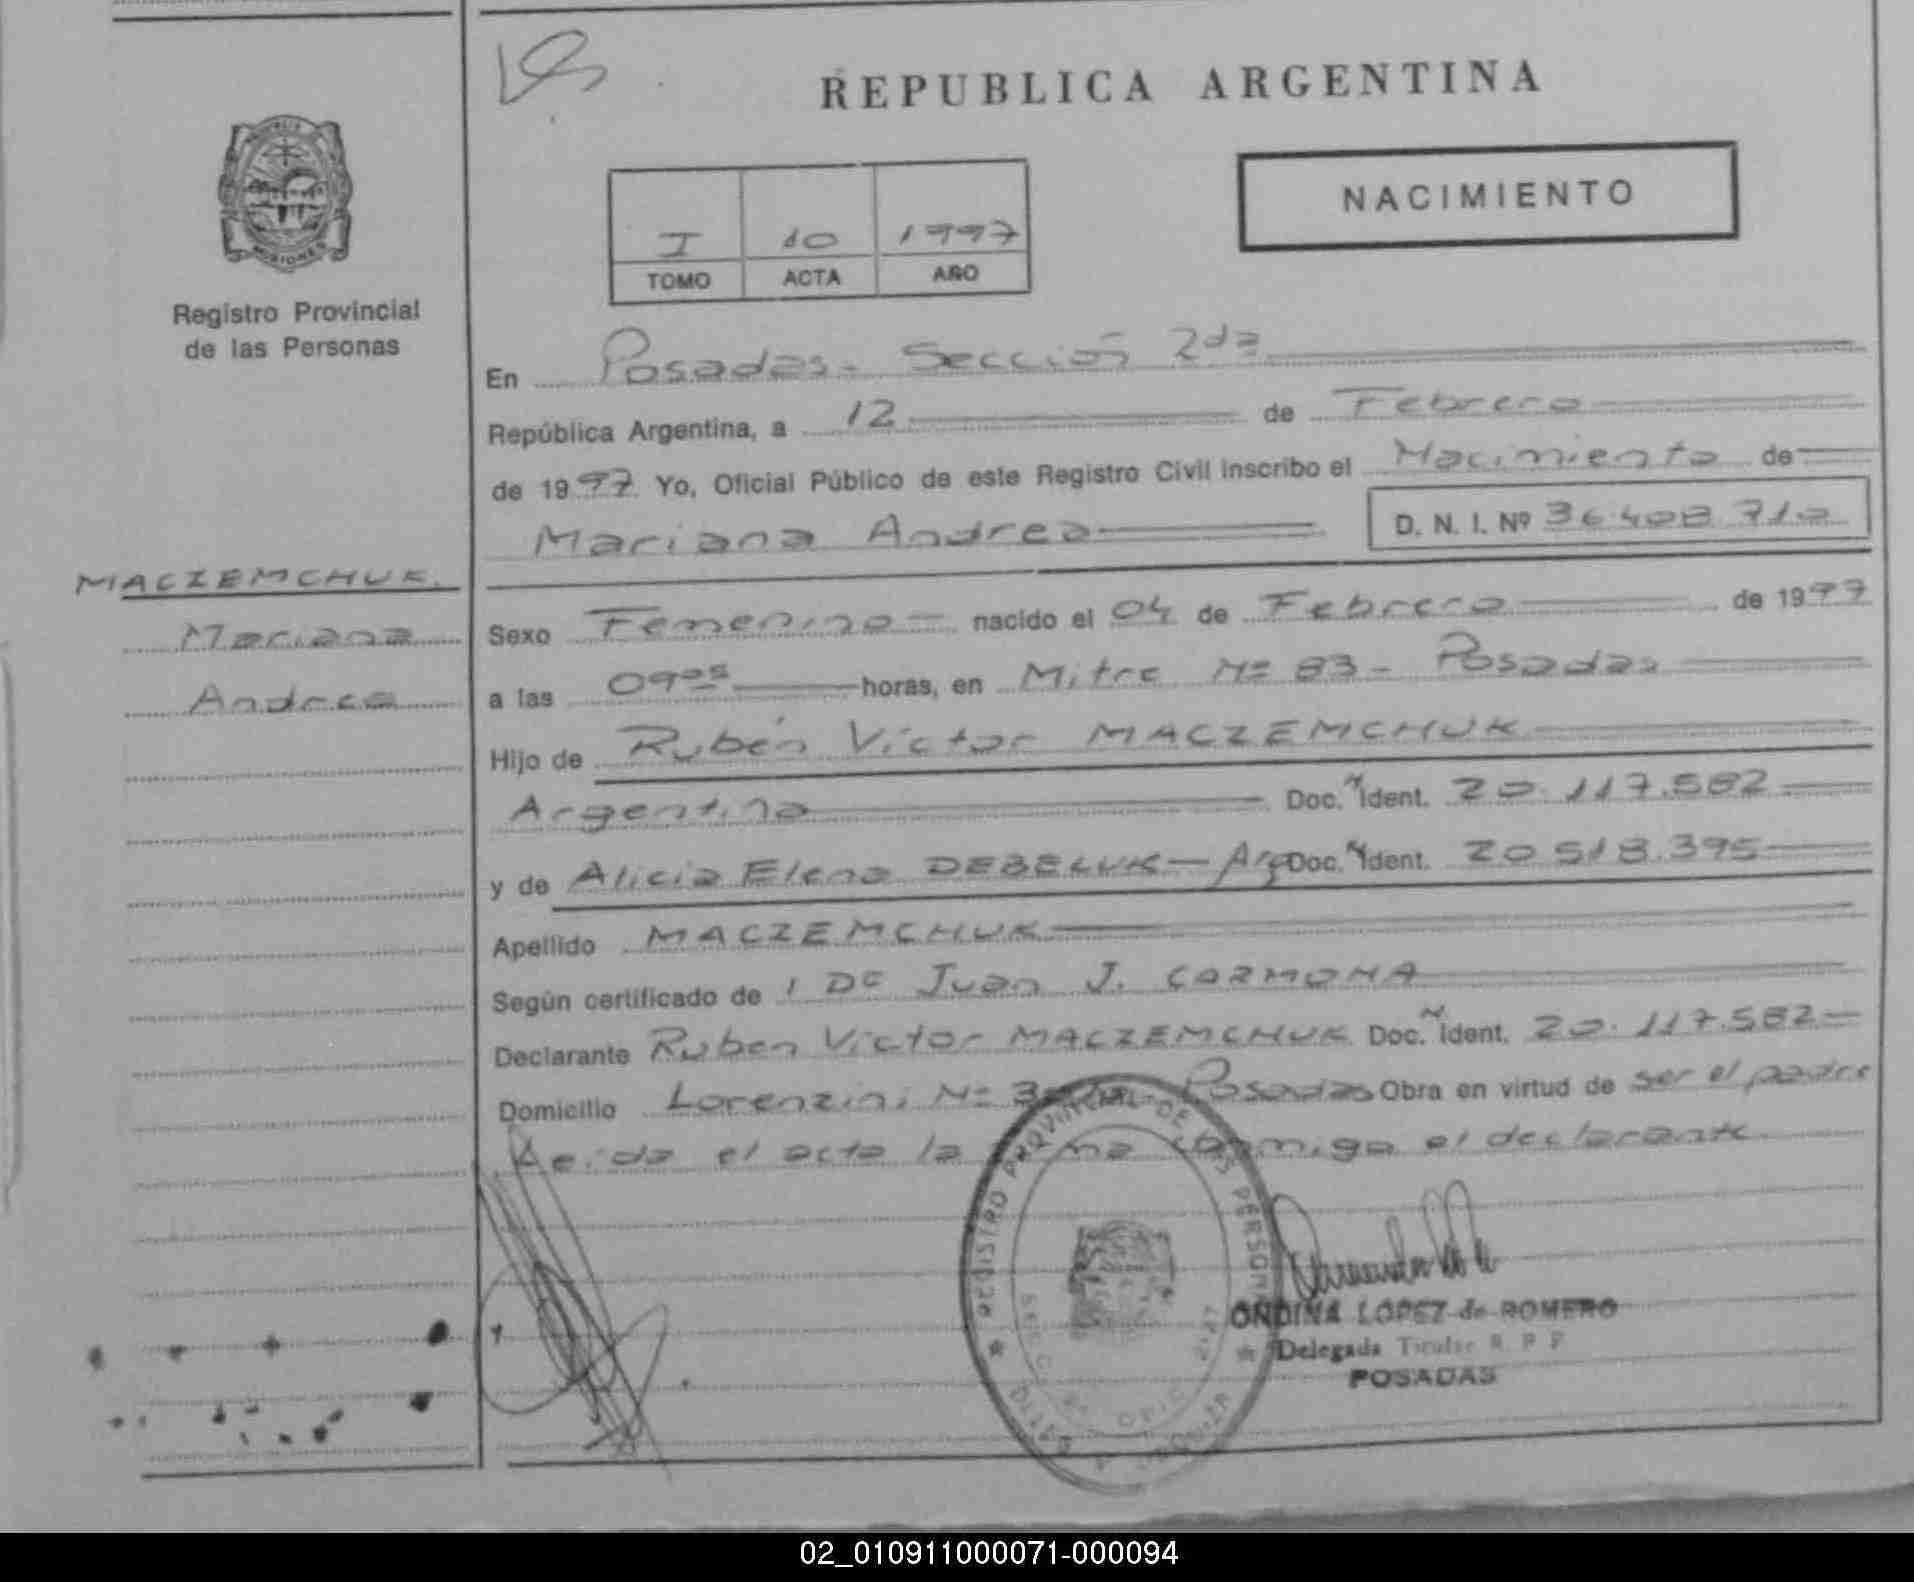 REPUBLICA ARGENTINA
NACIMIENTO
I 10 1997
TOMO ACTA AÑO
Registro Provincial
de las Personas
En Posadas - Sección 2da
República Argentina, a 12 de Febrero
de 1997 Yo, Oficial Público de este Registro Civil inscribo el Nacimiento de
Mariana Andrea D. N. I. Nº 36.408.710
MACZEMCHUK.
Mariana
Andrea
Sexo Femenino nacido el 04 de Febrero de 1997
a las 09 05 horas, en Mitre Nº 83 - Posadas
Hijo de Rubén Victor MACZEMCHUK
Argentino Doc. N Ident. 20.117.582
y de Alicia Elena DEBELUK - Arg Doc. N Ident. 20.518.395
Apellido MACZEMCHUK
Según certificado de 1 Dc Juan J. CARMONA
Declarante Ruben Victor MACZEMCHUK Doc. N Ident. 20.117.582
Domicilio Lorenzini Nº Posadas Obra en virtud de ser el padre
Leida el acta la conmigo el declarante
REGISTRO PROVINCIAL DE LAS PERSONAS
ONDINA LOPEZ de ROMERO
Delegada Titular R. P. P
POSADAS
02_010911000071-000094